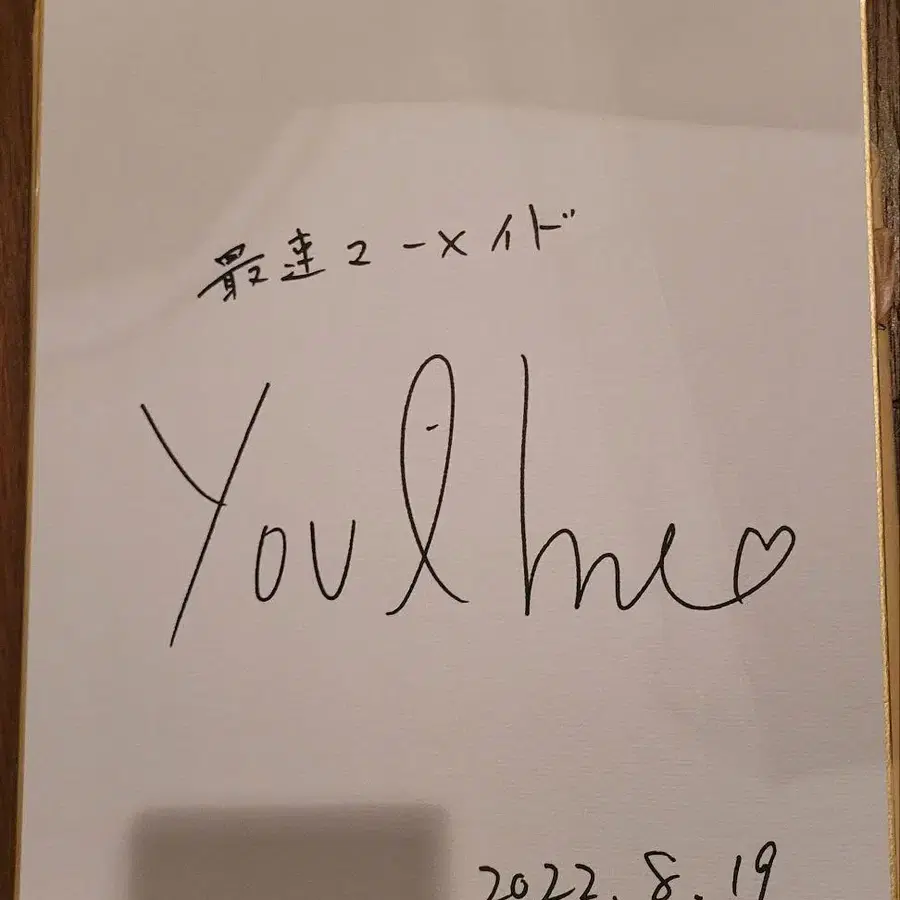 最速マーメイド
You
2022.8.19